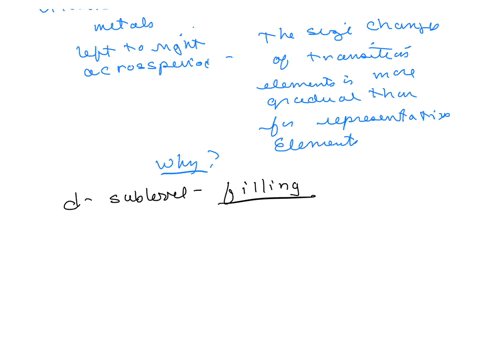 metals
left to right
across period -
The size changes
of transition
elements is more
gradual than
for representative
Elements
Why?
d- sublevel - filling